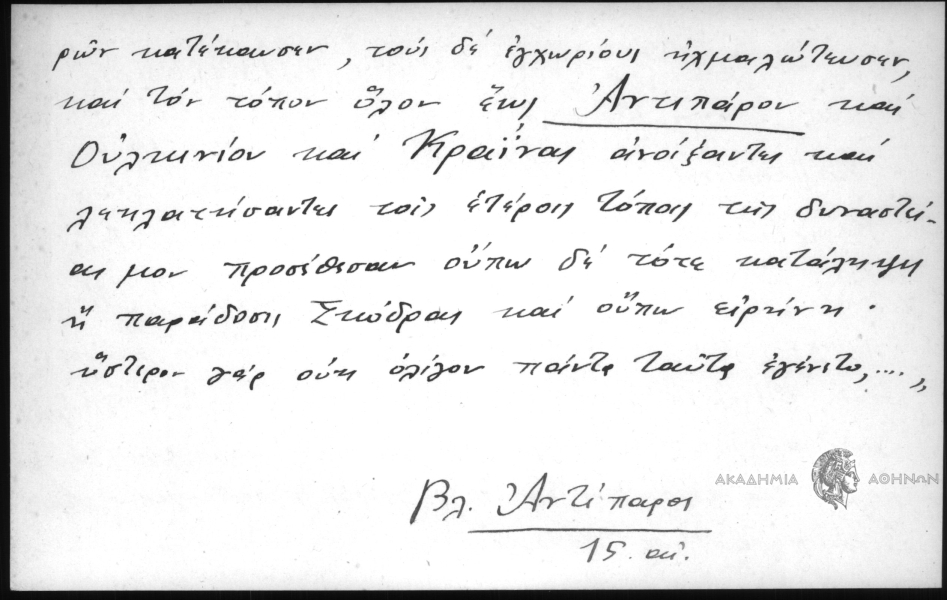 ρῶν κατέκαυσεν, τοὺς δέ ἐγχωρίους ᾐχμαλώτευσεν,
καί τόν τόπον ὅλον ἕως Ἀντιπάρον καί
Οὐλκινίον καί Κραΐνας ἀνοίξαντες καί
λεηλατήσαντες τοῖς ἑτέροις τόποις τῆς δυναστεί-
ας μου προσέθεσαν οὔπω δέ τότε κατάληψις
ἤ παράδοσις Σκόδρας καί οὔπω εἰρήνη ·
ὕστερον γάρ οὐκ ὀλίγον πάντα ταῦτα ἐγένετο, ....„
Βλ. Ἀντίπαρος
15. αἰ.
ΑΚΑΔΗΜΙΑ ΑΘΗΝΩΝ